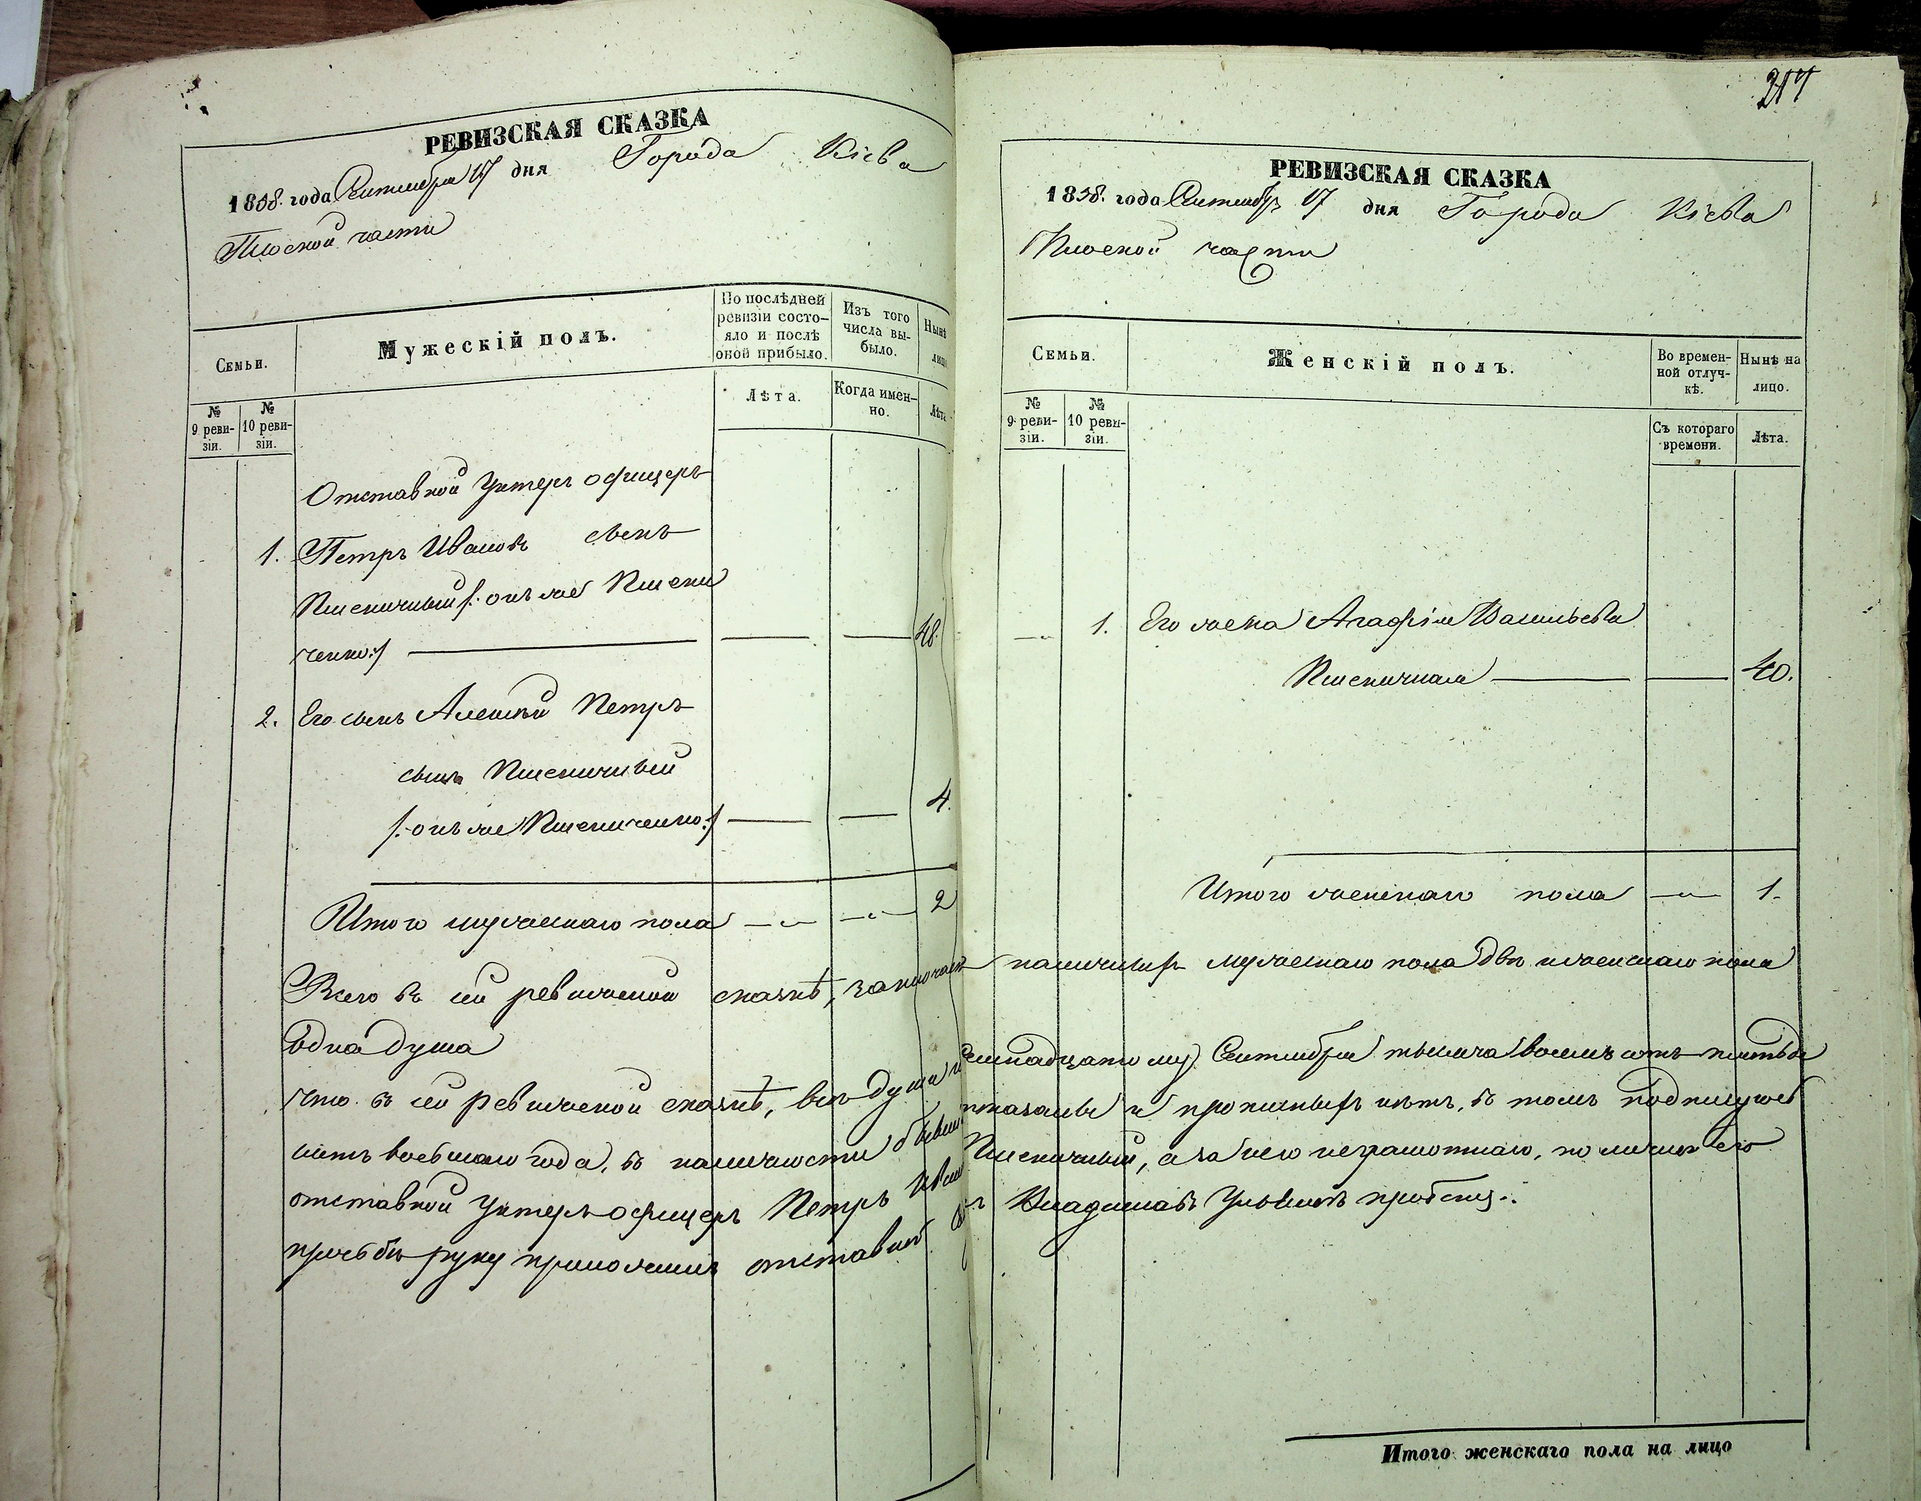 РЕВИЗСКАЯ СКАЗКА
1858. года Сентября 17 дня Города Кіева
Плоской части
Семьи.
Мужескій полъ.
По послѣдней ревизіи состо-
яло и послѣ
оной прибыло.
Изъ того
числа вы-
было.
Нынѣ
лицо
№
9 реви-
зіи.
№
10 реви-
зіи.
Лѣта.
Когда имен-
но.
Лѣта
Отставной Унтеръ офицеръ
1. Петръ Ивановъ сынъ
Пшеничный /: онъ же Пшени
ченко :/ 48.
2. Его сынъ Алексѣй Петръ
сынъ Пшеничный
/: онъ же Пшениченко :/ 4.
Итого мужескаго пола 2
Всего въ сей ревижской сказкѣ, заключает
одна душа
что въ сей ревижской сказкѣ, всѣ души к
сятъ восьмаго года, въ наличности бывши
отставной Унтеръ-офицеръ Петръ Иван
прозьбы руку приложилъ отставной
217
РЕВИЗСКАЯ СКАЗКА
1858. года Сентября 17 дня Города Кіева
Плоской части
Семьи.
Женскій полъ.
Во времен-
ной отлуч-
кѣ.
Нынѣ на
лицо.
№
9 реви-
зіи.
№
10 реви-
зіи.
Съ котораго
времени.
Лѣта.
1. Его жена Агафія Васильева
Пшеничная 40.
Итого женскаго пола 1.
наличныхъ мужескаго пола двѣ и женскаго пола
семнадцатому Сентября тысяча восемь сотъ пятьде
показаны и прописныхъ нѣтъ, въ томъ подписуюсь
Пшеничный, а за него неграмотнаго, по личной его
Владиславъ
Итого женскаго пола на лицо